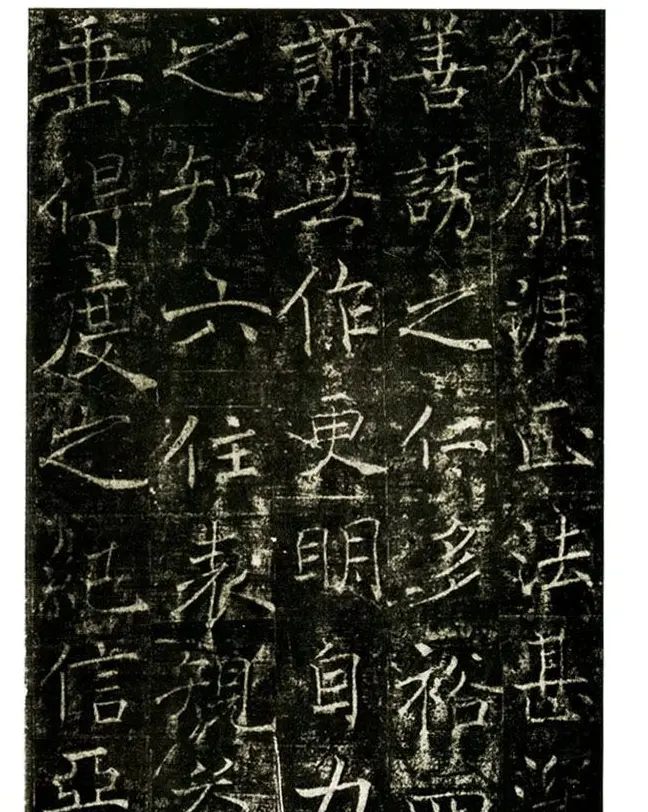 德靡涯正法甚
善誘之仁多裕四
諦無作更明自力
之知六住表規
垂得度之紀信亞